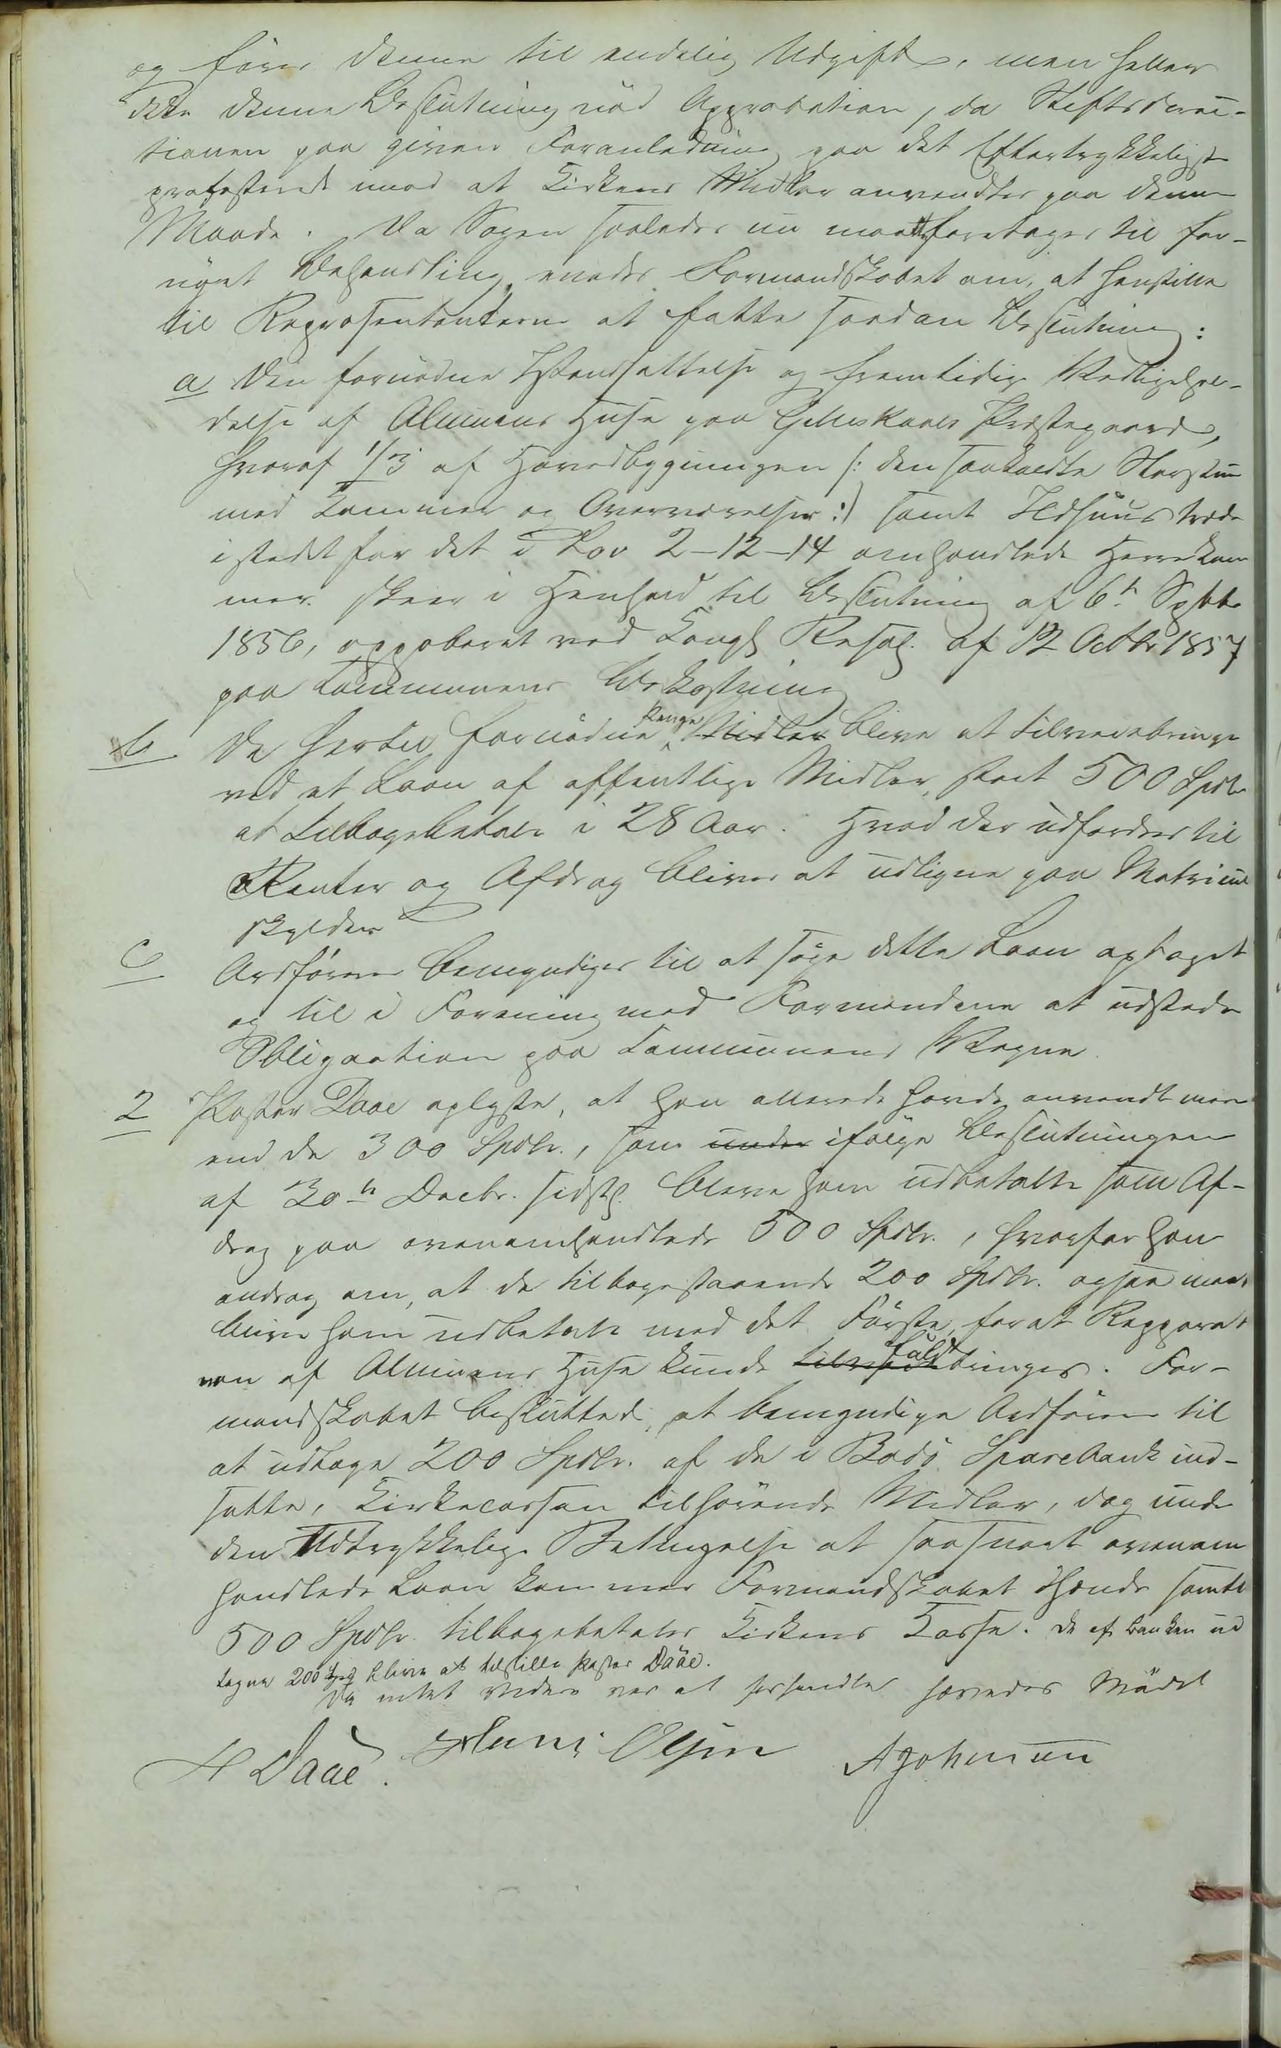 og fører denne til endelig Udgift, men heller
ikke denne Beslutning nød Approbation, da Stiftsdirec-
tionen paa given Foranledning paa det Eftertrykkeligste
protesterede imod at Kirkens Midler anvendtes paa denne
Maade. Da Sagen saaledes nu maatte foretages til for-
nyet Behandling, enedes Formandskabet om, at henstille
til Repræsentanterne at fatte saadan Beslutning:
a Den fornødne Istandsættelse og fremtidige Vedligehol-
delse af Almuens Huse paa Gilleskaals Præstegaard,
hvoraf 1/3 af Hovedbygningen /: den saakaldte Storstue
med Kammer og Overværelser :/ samt Ildhuus træde
istedet for det i Lov 2-12-14 omhandlede Herrekam
mer. skeer i Henhold til Beslutning af 6te Septbr
1856, approberet ved Kongl Resol. af 12 Octbr 1857
paa Kommunens Bekostning
b De hertil fornødne Penge Midler blive at tilveiebringe
ved et Laan af offentlige Midler, stort 500 Spdlr
at tilbagebetale i 28 Aar. Hvad der udfordres til
Renter og Afdrag bliver at udligne paa Matricul
skylden
c Ordføreren bemyndiges til at søge dette Laan optaget
og til i Forening med Formændene at udstede
Obligation paa Kommunens Vegne.
2 Pastor Daae oplyste, at han allerede havde anvendt mere
end de 300 Spdlr., som under ifølge Beslutningen
af 30te Decbr. sidstl. bleve ham udbetalte som Af-
drag paa ovenomhandlede 500 Spdlr., hvorfor han
androg om, at de tilbagestaaende 200 Spdlr. ogsaa maatte
blive ham udbetalte med det Første, for at Repparati
onen af Almuens Huse kunde fuldbringes. For-
mandskabet besluttede, at bemyndige Ordføreren til
at udtage 200 Spdlr. af de i Bodø Sparebank ind-
satte, Kirkecassen tilhørende Midler, dog under
den Udtrykkelige Betingelse at saasnart ovenom
handlede Laan kommer Formandskabet ihænde samtl
500 Spdlr. tilbagebetales Kirkens Kasse. De af Banken ud
tagne 200 Spd blive at tilstille Pastor Daae.
Da intet Videre var at forhandle hævedes Mødet
H Daae. Hans Olsen A Johnsen